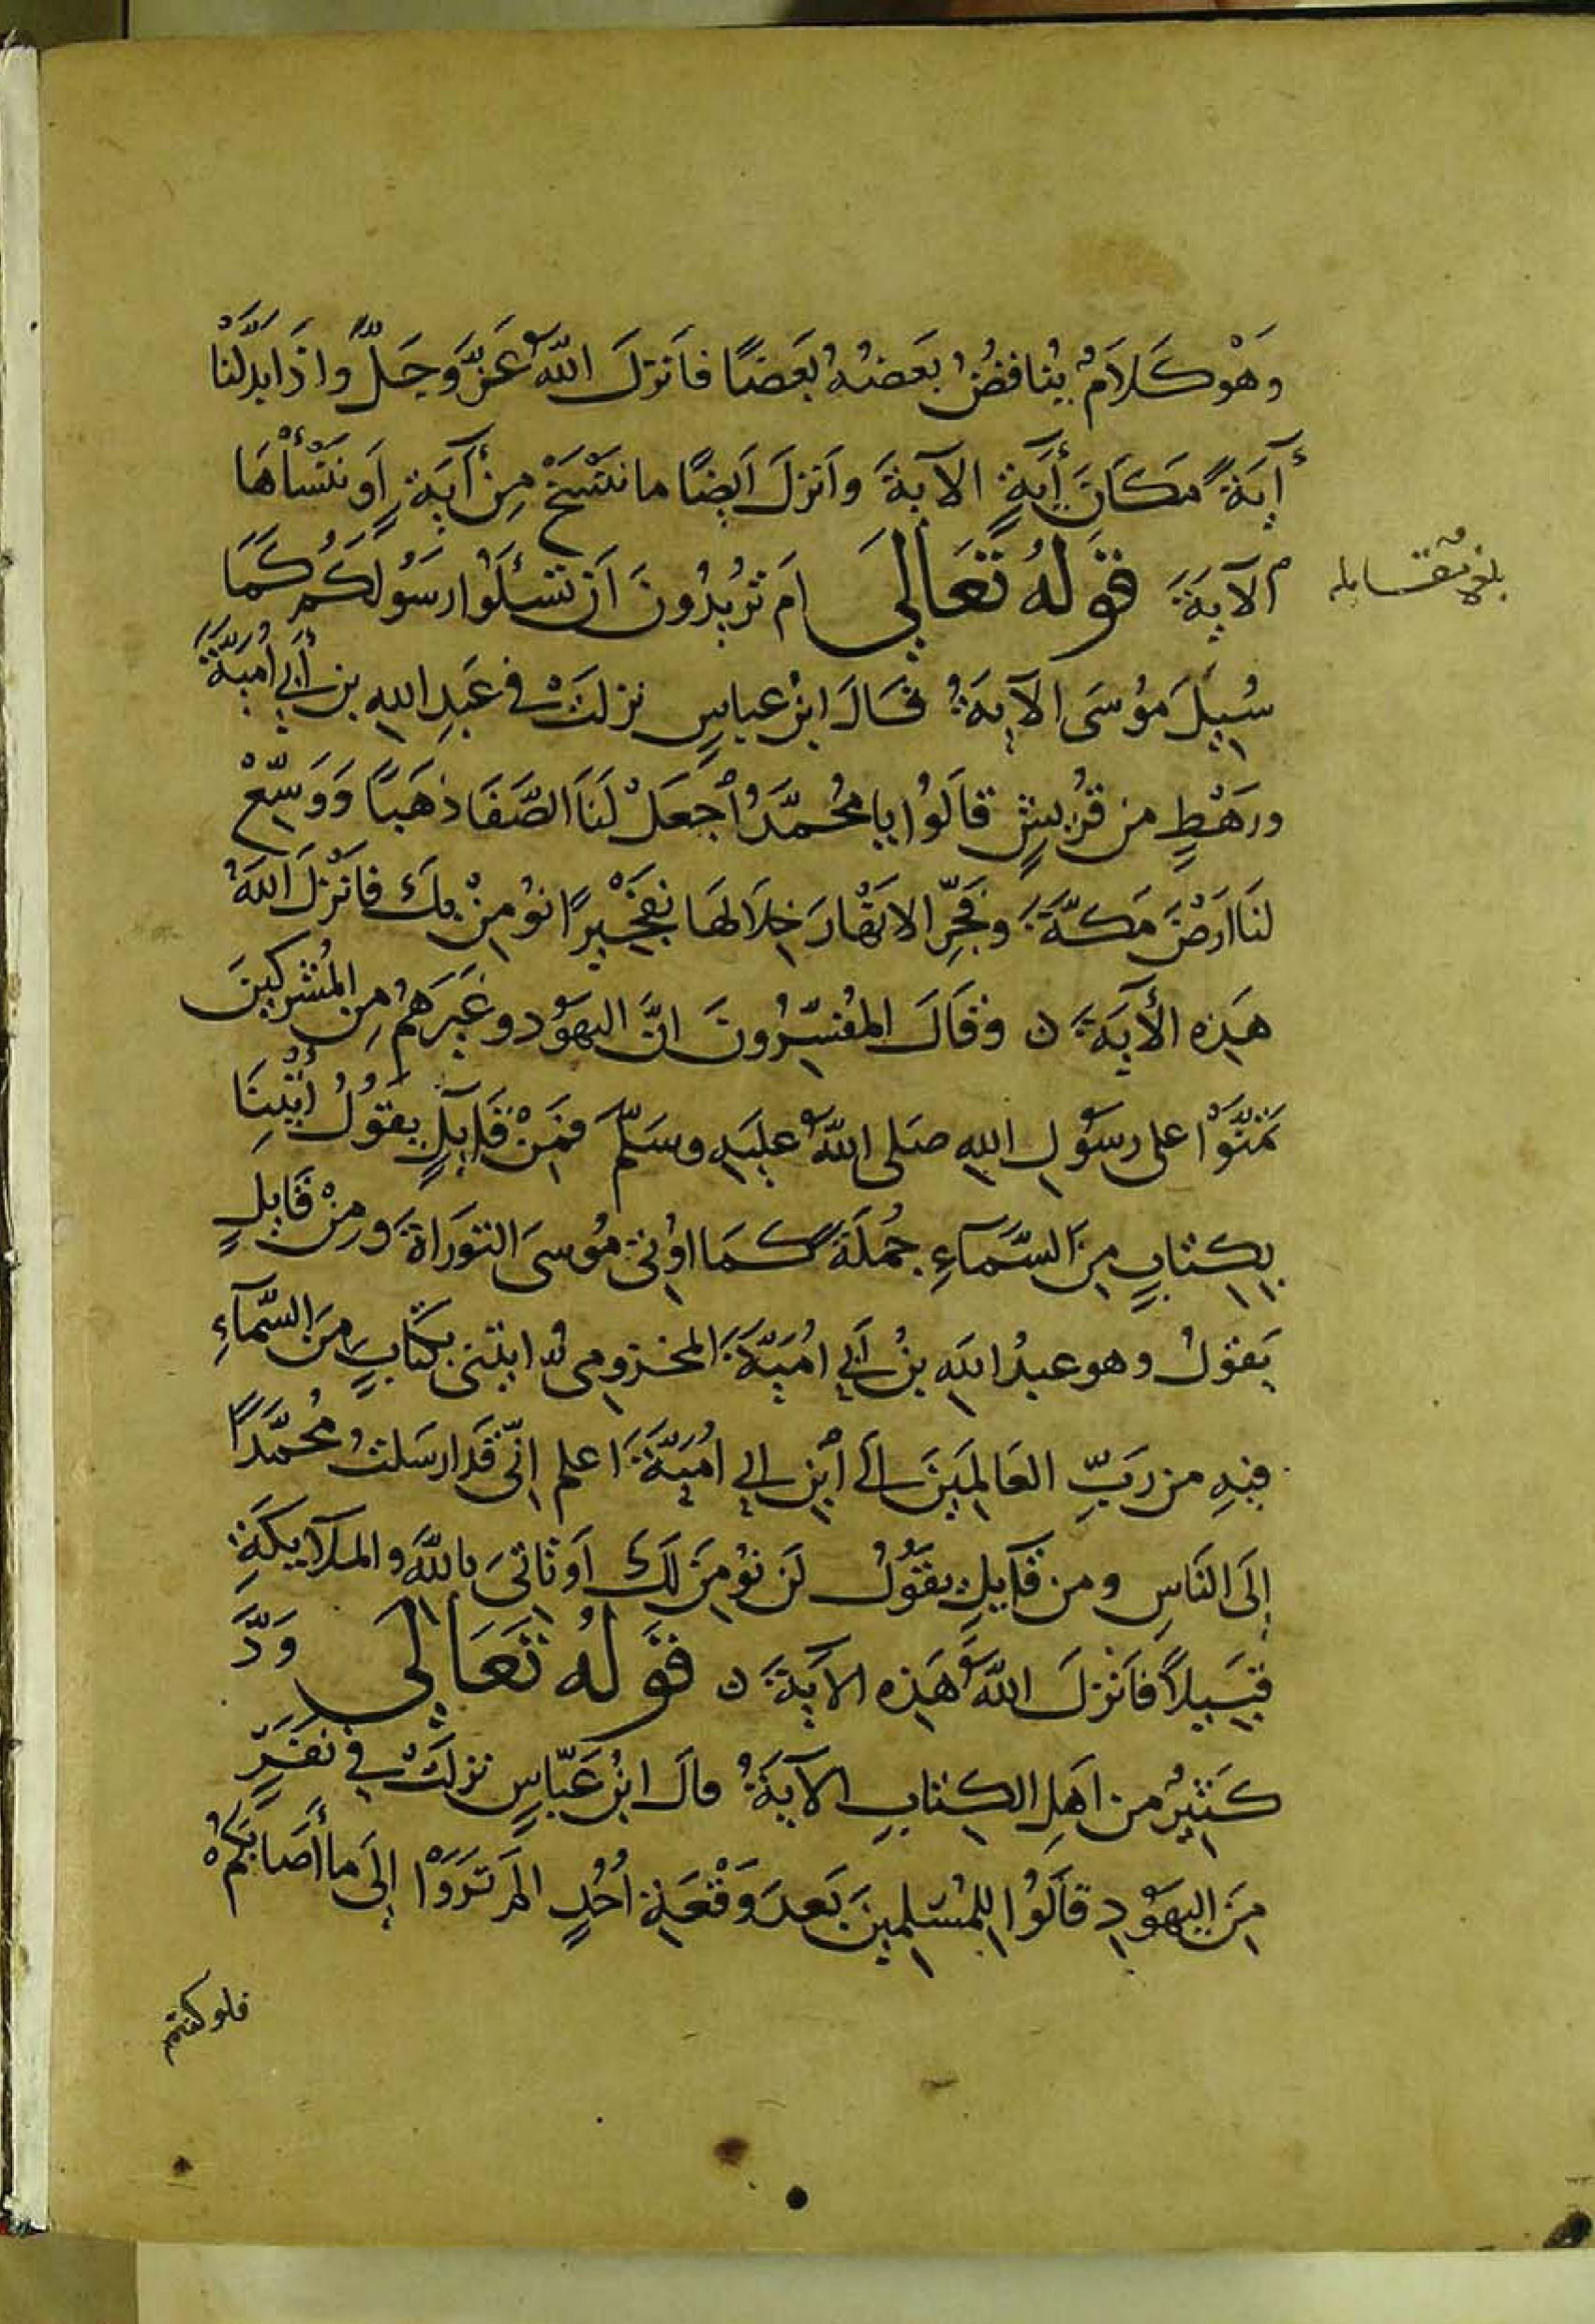 وَهْوَ كَلَامٌ يُنافِضُ بَعَضُهُ بَعَضًا فَأَنزَلَ اللهُ عَزَّ وَجَلَّ وإذَا بدَّلنَا
آيَةً مَكَانَ أيَةٍ الآيةَ وأنزلَ أيضًا ما نَنْسَخْ مِنْ آيَةٍ أو نَنْسَأْهَا
الآيةَ قَوَلُهُ تَعَالَى أم تُرُيدُونَ أَن تَسْئَلُوا رَسُولَكُمْ كَمَا
بلغ مقابله
سُيِلَ مُوُسَى الآيَةَ قَالَ ابنُ عباسٍ نزلتْ في عَبدِ اللهِ بن أَبي أُميَّةَ
ورَهْطٍ من قُرَيشٍ قالُوا يا مُحُمَّدُ اجعَلْ لنَا الصَّفَا ذهَبًا وَوَسِّعْ
لنَا ارَضَ مَكَّةَ وفَجِّرِ الانهَارَ خِلَالهَا تفجْيرًا نوُمِنْ بكَ فانْزلَ اللهُ
هَذِه الأيةَ ن وقَالَ المُفسِّرُونَ انَّ اليهَوُد وغَيرَهمُ مِن المُشركينَ
تمنَّوْا على رسوُلِ اللهِ صَلى اللهُ عليَهِ وسَلَّم فمَنْ قَايلٍ يقوُلُ أيُتنِا
بِكتابٍ مِنَ السَّمآءِ جمُلَةً كمَا اوُتىَ مُوسىَ التورَاةَ ومِنْ قَايلٍ
يَقوُلُ وهو عبدُ اللهِ بنُ أَبِي اُميَّةَ المخزومىُّ ايتنى بكتابٍ مِنَ السَّمآءِ
فيهِ من رَبِّ العَالمِينَ الَى أبنِ ابي اُميَّةَ اعلم انِّى قَد ارسَلتُ مُحمَّدًا
إلَى النَاسِ ومن قَآيلٍ يقَوُلُ لَن نؤمِنَ لَكَ اَو تاتىَ بالله والملآيكَةِ
قبَيلاً فأنزلَ اللهُ هَذِه الآيةَ ن قوَلُه تعَالَى وَدَّ
كَثيرٌ من اَهلِ الكتابِ الآيةَ قالَ ابنُ عَبّاسٍ نزلتْ في نفَرٍ
مِنَ اليهَوُدِ قالوُا للمُسْلمِينَ بَعدَ وَقْعَةِ اُحُدٍ الم تَرَوْا إلَى ما أصَابَكمُ
فلو كنتم